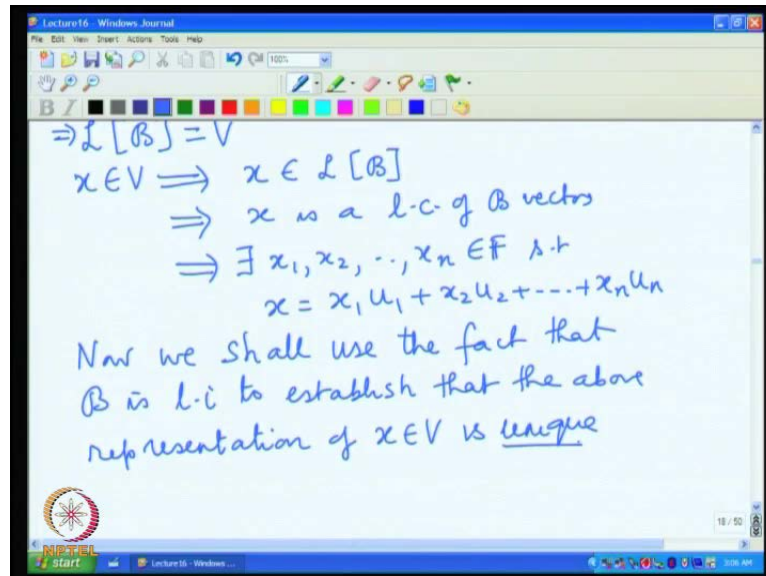 Lecture16 - Windows Journal
File Edit View Insert Actions Tools Help
100%
B I
⇒ L [B] = V
x ∈ V ⟹ x ∈ L [B]
⟹ x is a l.c. of B vectors
⟹ ∃ x₁, x₂, .., xₙ ∈ F s.t
x = x₁ u₁ + x₂ u₂ + ---- + xₙ uₙ
Now we shall use the fact that
B is l.i to establish that the above
representation of x ∈ V is unique
18 / 50
NPTEL
start Lecture16 - Windows ... 3:06 AM